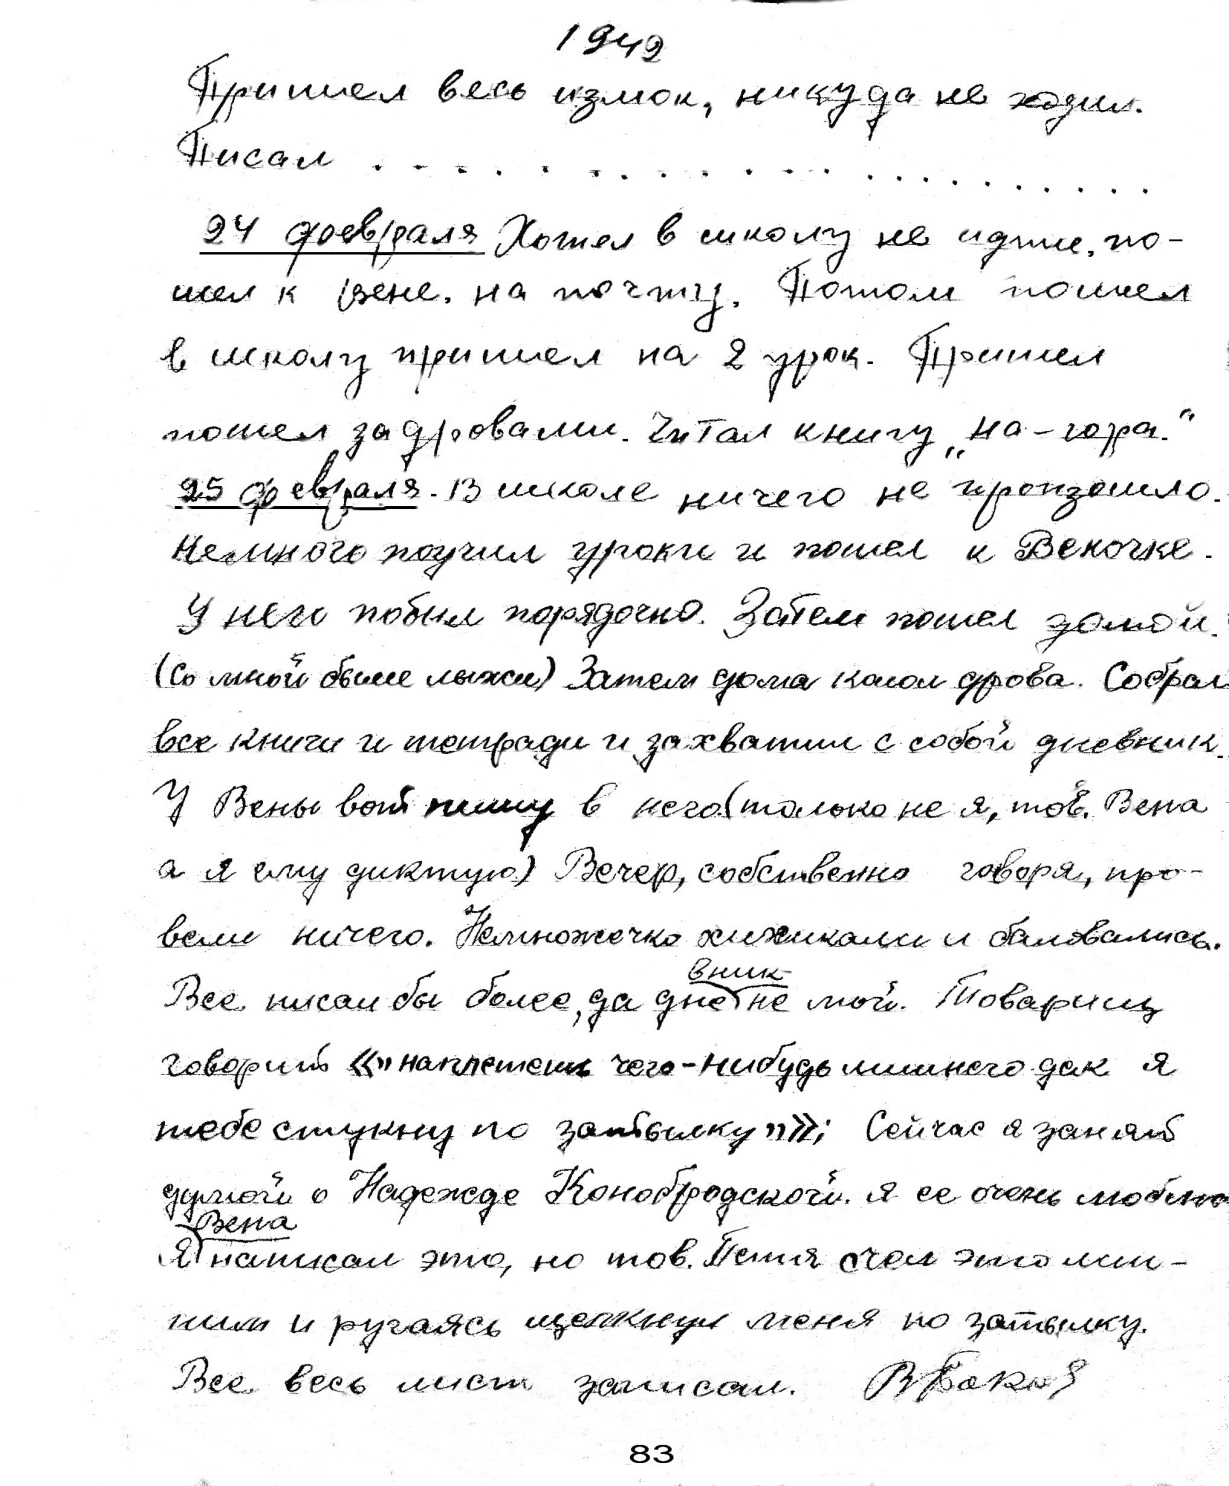 1942
Пришел весь измок, никуда не ходил.
Писал . . . . . . . . . . . . . . . . . . . . . .
24 февраля Хотел в школу не идти, по-
шел к Вене. на почту. Потом пошел
в школу пришел на 2 урок. Пришел
пошел за дровами. Читал книгу „на-гора.“
25 февраля. В школе ничего не произошло.
Немного поучил уроки и пошел к Веночке.
У него побыл порядочно. Затем пошел домой.
(Со мной были лыжи) Затем дома колол дрова. Собрал
все книги и тетради и захватил с собой дневник.
У Вены вот пишу в него (только не я, тов. Вена
а я ему диктую) Вечер, собственно говоря, про-
вели ничего. Немножечко хихикали и баловались.
вник
Все писал бы более, да дне не мой. Товарищ
говорит «"наплетешь чего-нибудь лишнего дак я
тебе стукну по затылку"»; Сейчас я занят
думой о Надежде Конобродской. я ее очень люблю
Вена
Я написал это, но тов. Петя счел это лиш-
ним и ругаясь щелкнул меня по затылку.
Все весь лист записал. ВБаков
83